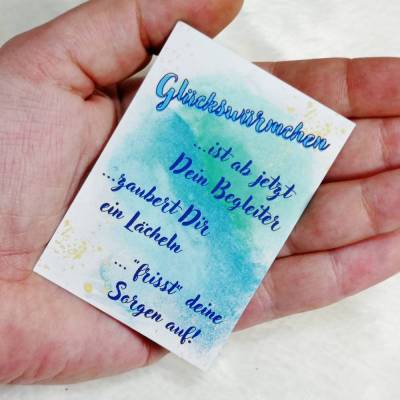 Glückswürmchen
...ist ab jetzt
Dein Begleiter
...zaubert Dir
ein Lächeln
... "frisst" deine
Sorgen auf!